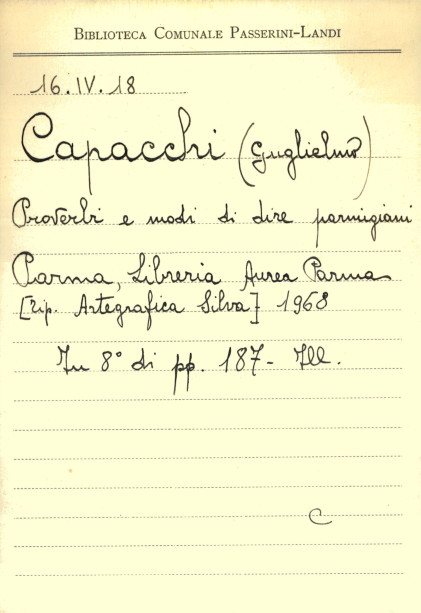 BIBLIOTECA COMUNALE PASSERINI-LANDI
16.IV.18
Capacchi (Guglielmo)
Proverbi e modi di dire parmigiani
Parma, Libreria Aurea Parma
[Tip. Artegrafica Silva] 1968
In 8° di pp. 187- Ill.
C